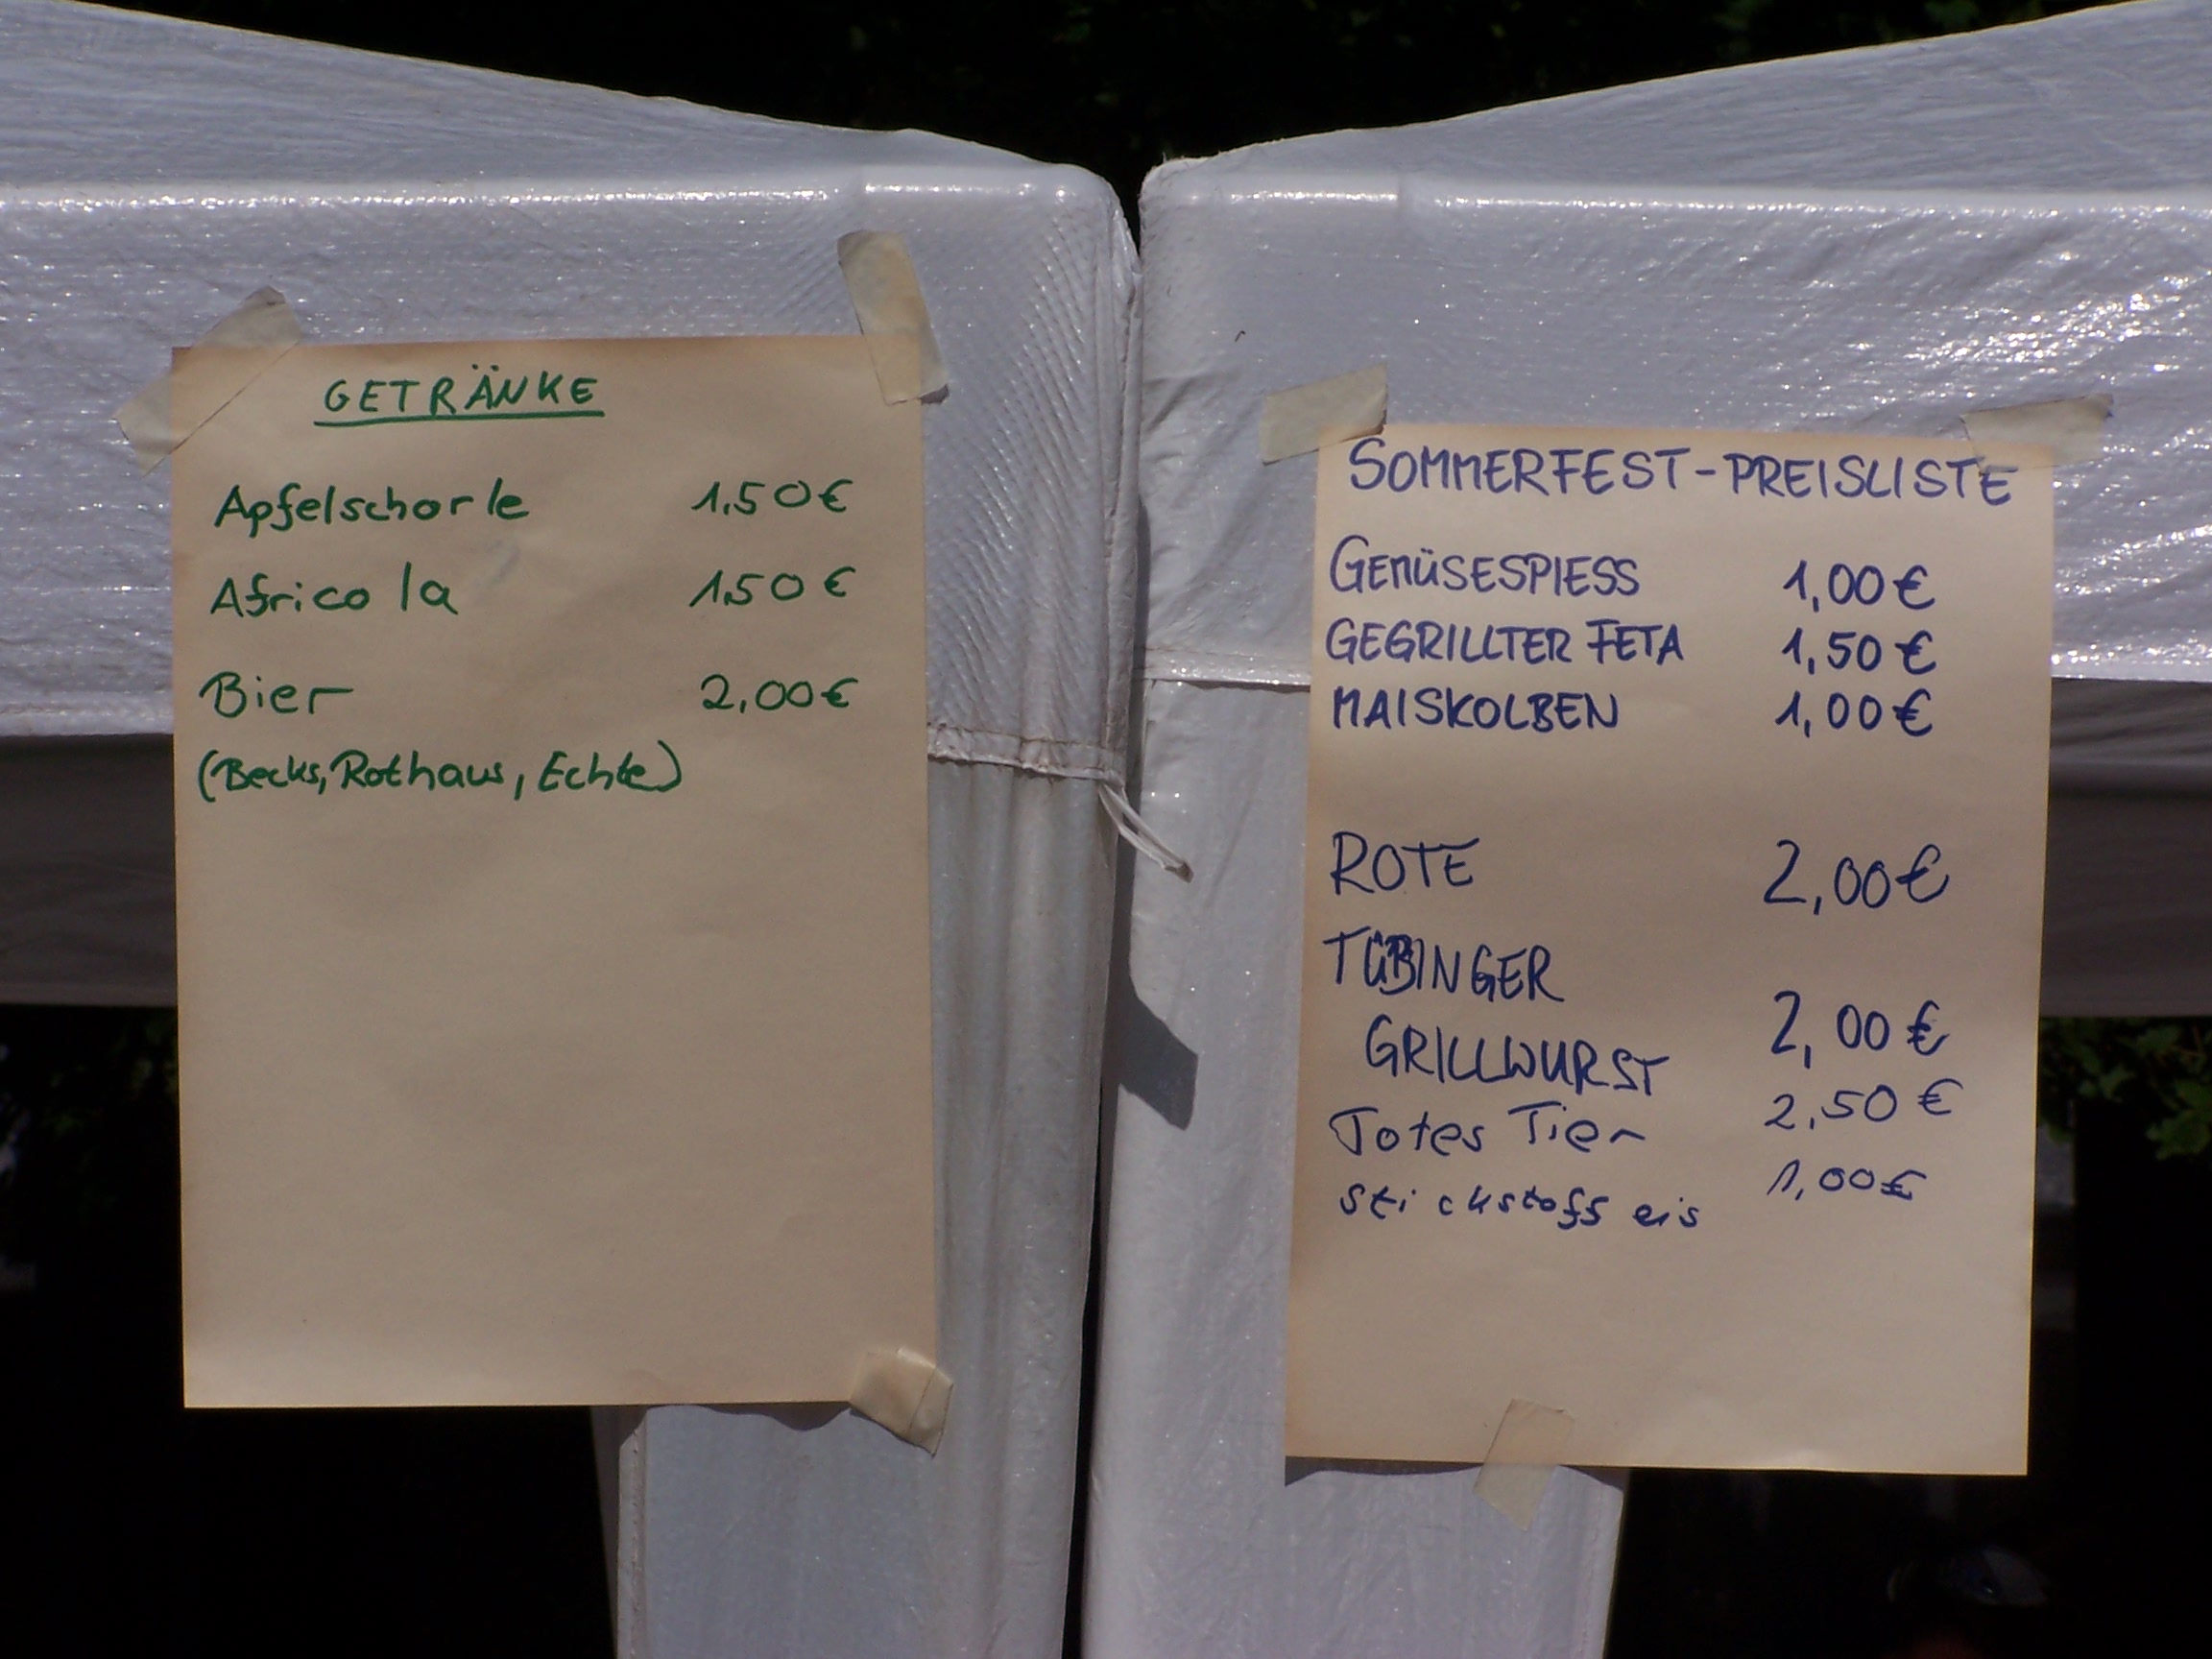 GETRÄNKE
Apfelschorle 1,50€
Africola 1,50€
Bier 2,00€
(Becks, Rothaus, Echte)
SOMMERFEST-PREISLISTE
GEMÜSESPIESS 1,00€
GEGRILLTER FETA 1,50€
MAISKOLBEN 1,00€
ROTE 2,00€
TÜBINGER
GRILLWURST 2,00€
Totes Tier 2,50€
Stickstoffeis 1,00€